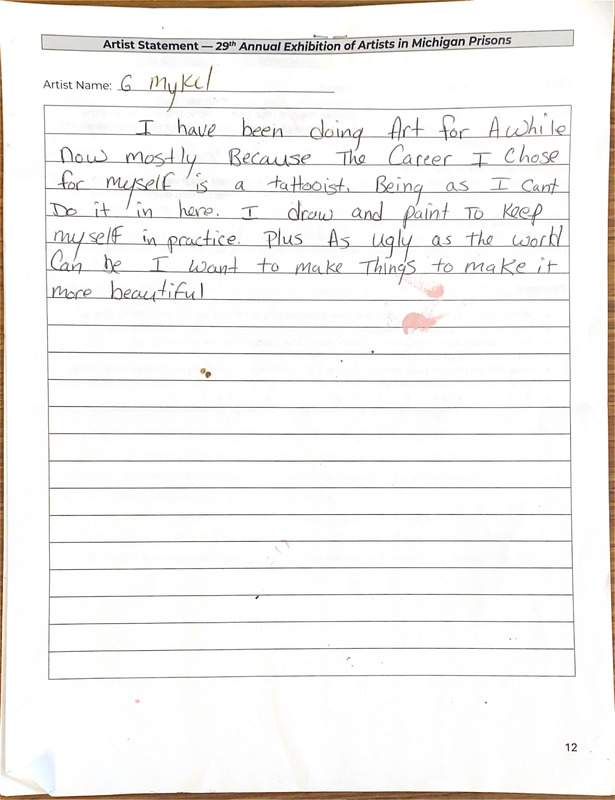 Artist Statement — 29th Annual Exhibition of Artists in Michigan Prisons
Artist Name: G Mykel
I have been doing Art for Awhile
Now mostly Because The Career I Chose
for myself is a tattooist. Being as I Cant
Do it in here. I draw and paint To Keep
myself in practice. Plus As Ugly as the world
Can be I want to make Things to make it
more beautiful
12